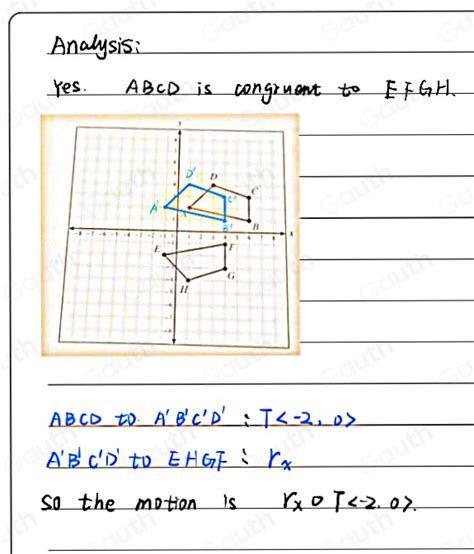 Analysis:
Yes. ABCD is congruent to EFGH.
y
D' D
C' C
A' A
B' B
x
E F
G
H
ABCD to A'B'C'D' : T<-2, 0>
A'B'C'D' to EHGF : rx
So the motion is rx o T<-2. 0>.